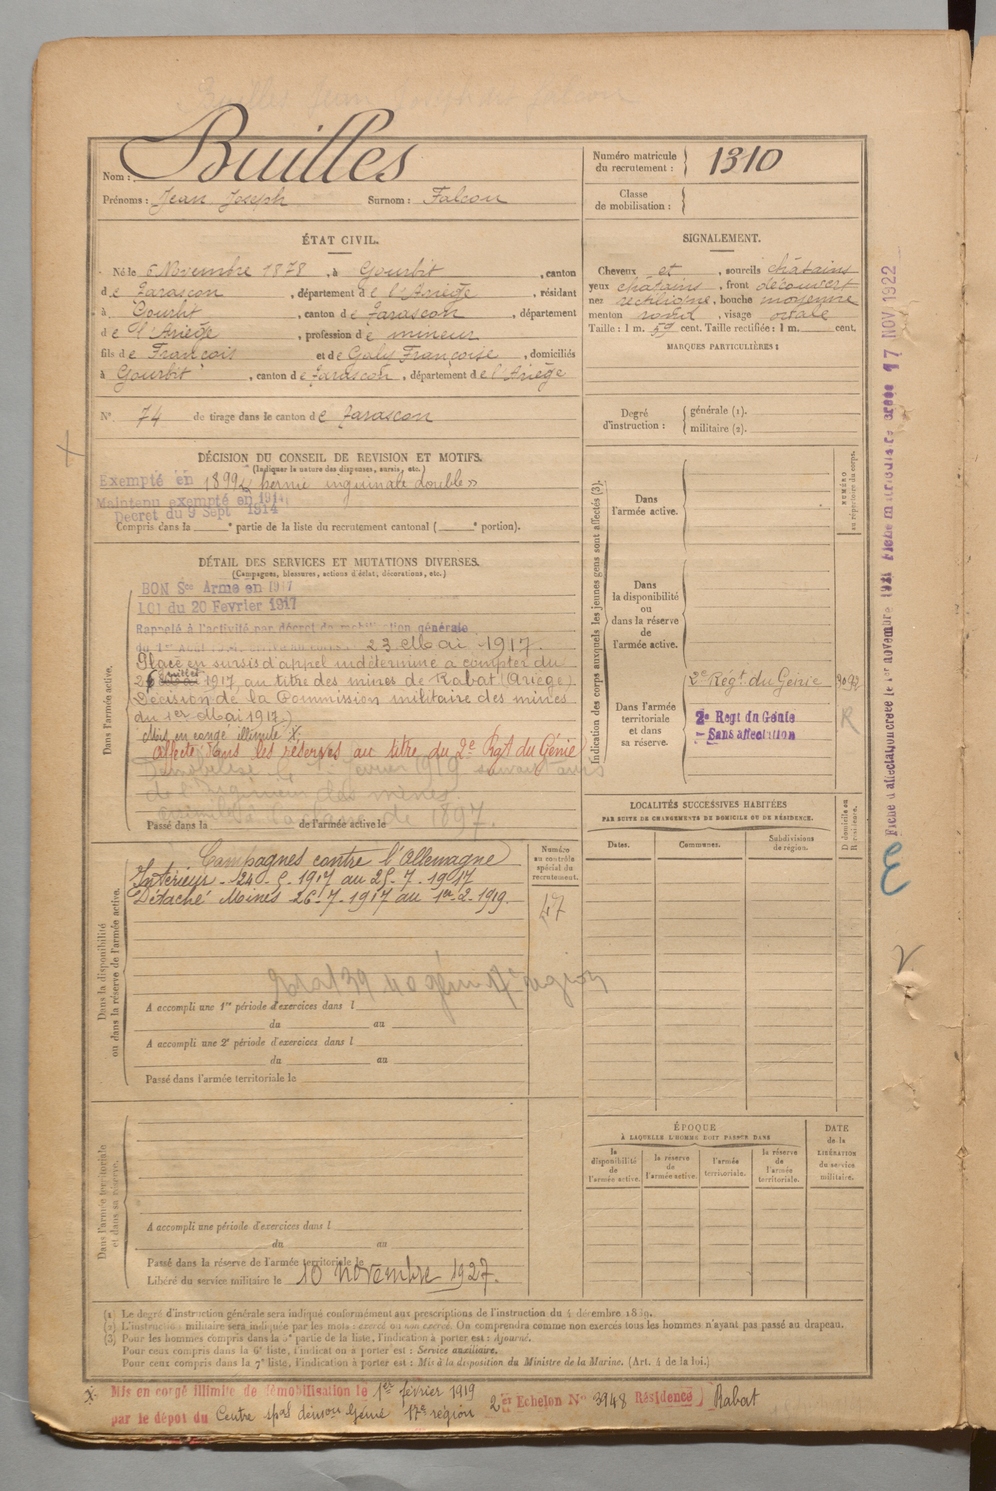 Nom : Builles
Prénoms : Jean Joseph Surnom : Falcou
Numéro matricule du recrutement : 1310
Classe de mobilisation :
ÉTAT CIVIL.
Né le 6 Novembre 1878, à Gourbit, canton
de Tarascon, département de l'Ariège, résidant
à Gourbit, canton de Tarascon, département
de l'Ariège, profession de mineur
fils de François et de Galy Françoise, domiciliés
à Gourbit, canton de Tarascon, département de l'Ariège
N° 74 de tirage dans le canton de Tarascon
SIGNALEMENT.
Cheveux et, sourcils châtains
yeux châtains, front découvert
nez rectiligne, bouche moyenne
menton rond, visage ovale
Taille : 1 m. 59 cent. Taille rectifiée : 1 m. cent.
MARQUES PARTICULIÈRES :
Degré d'instruction : générale (1).
militaire (2).
DÉCISION DU CONSEIL DE REVISION ET MOTIFS.
(Indiquer la nature des dispenses, sursis, etc.)
Exempté en 1899 « hernie inguinale double »
Maintenu exempté en 1914
Décret du 9 Sept 1914
Compris dans la ° partie de la liste du recrutement cantonal ( ° portion).
DÉTAIL DES SERVICES ET MUTATIONS DIVERSES.
(Campagnes, blessures, actions d'éclat, décorations, etc.)
BON Sce Armé en 1917
LOI du 20 Fevrier 1917
Rappelé à l'activité par décret de mobilisation générale
23 Mai 1917.
Placé en sursis d'appel indéterminé à compter du
26 juillet 1917, au titre des mines de Rabat (Ariège)
Décision de la Commission militaire des mines
du 1er Mai 1917
Mis en congé illimité X.
Affecté dans les réserves au titre du 2e Rgt du Génie
Démobilisé le 1er février 1919 suivant avis
de l'Ingénieur des mines
à la classe de 1897.
Dans l'armée active.
Passé dans la de l'armée active le
Indication des corps auxquels les jeunes gens sont affectés (3).
NUMÉRO au répertoire du corps.
Dans l'armée active.
Dans la disponibilité ou dans la réserve de l'armée active.
Dans l'armée territoriale et dans sa réserve.
2e Régt du Génie
2e Regt du Génie
— Sans affectation
R
LOCALITÉS SUCCESSIVES HABITÉES
PAR SUITE DE CHANGEMENTS DE DOMICILE OU DE RÉSIDENCE.
Dates. Communes. Subdivisions de région.
D domicile ou R résidence.
Campagnes contre l'Allemagne
Intérieur. 24.5.1917 au 25.7.1917
Détaché Mines 26.7.1917 au 1er.2.1919.
Numéro au contrôle spécial du recrutement.
47
Dans la disponibilité ou dans la réserve de l'armée active.
A accompli une 1re période d'exercices dans l
du au
A accompli une 2e période d'exercices dans l
du au
Passé dans l'armée territoriale le
ÉPOQUE
À LAQUELLE L'HOMME DOIT PASSER DANS
la disponibilité de l'armée active.
la réserve de l'armée active.
l'armée territoriale.
la réserve de l'armée territoriale.
DATE de la LIBÉRATION du service militaire.
Dans l'armée territoriale et dans sa réserve.
A accompli une période d'exercices dans l
du au
Passé dans la réserve de l'armée territoriale le
Libéré du service militaire le 10 novembre 1927.
(1) Le degré d'instruction générale sera indiqué conformément aux prescriptions de l'instruction du 4 décembre 1889.
(2) L'instruction militaire sera indiquée par les mots : exercé ou non exercé. On comprendra comme non exercés tous les hommes n'ayant pas passé au drapeau.
(3) Pour les hommes compris dans la 5e partie de la liste, l'indication à porter est : Ajourné.
Pour ceux compris dans la 6e liste, l'indication à porter est : Service auxiliaire.
Pour ceux compris dans la 7e liste, l'indication à porter est : Mis à la disposition du Ministre de la Marine. (Art. 4 de la loi.)
X. Mis en congé illimité de démobilisation le 1er février 1919 2er Echelon N° 3948 Résidence Rabat
par le dépôt du Centre spal Génie 17e région
17 NOV 1922